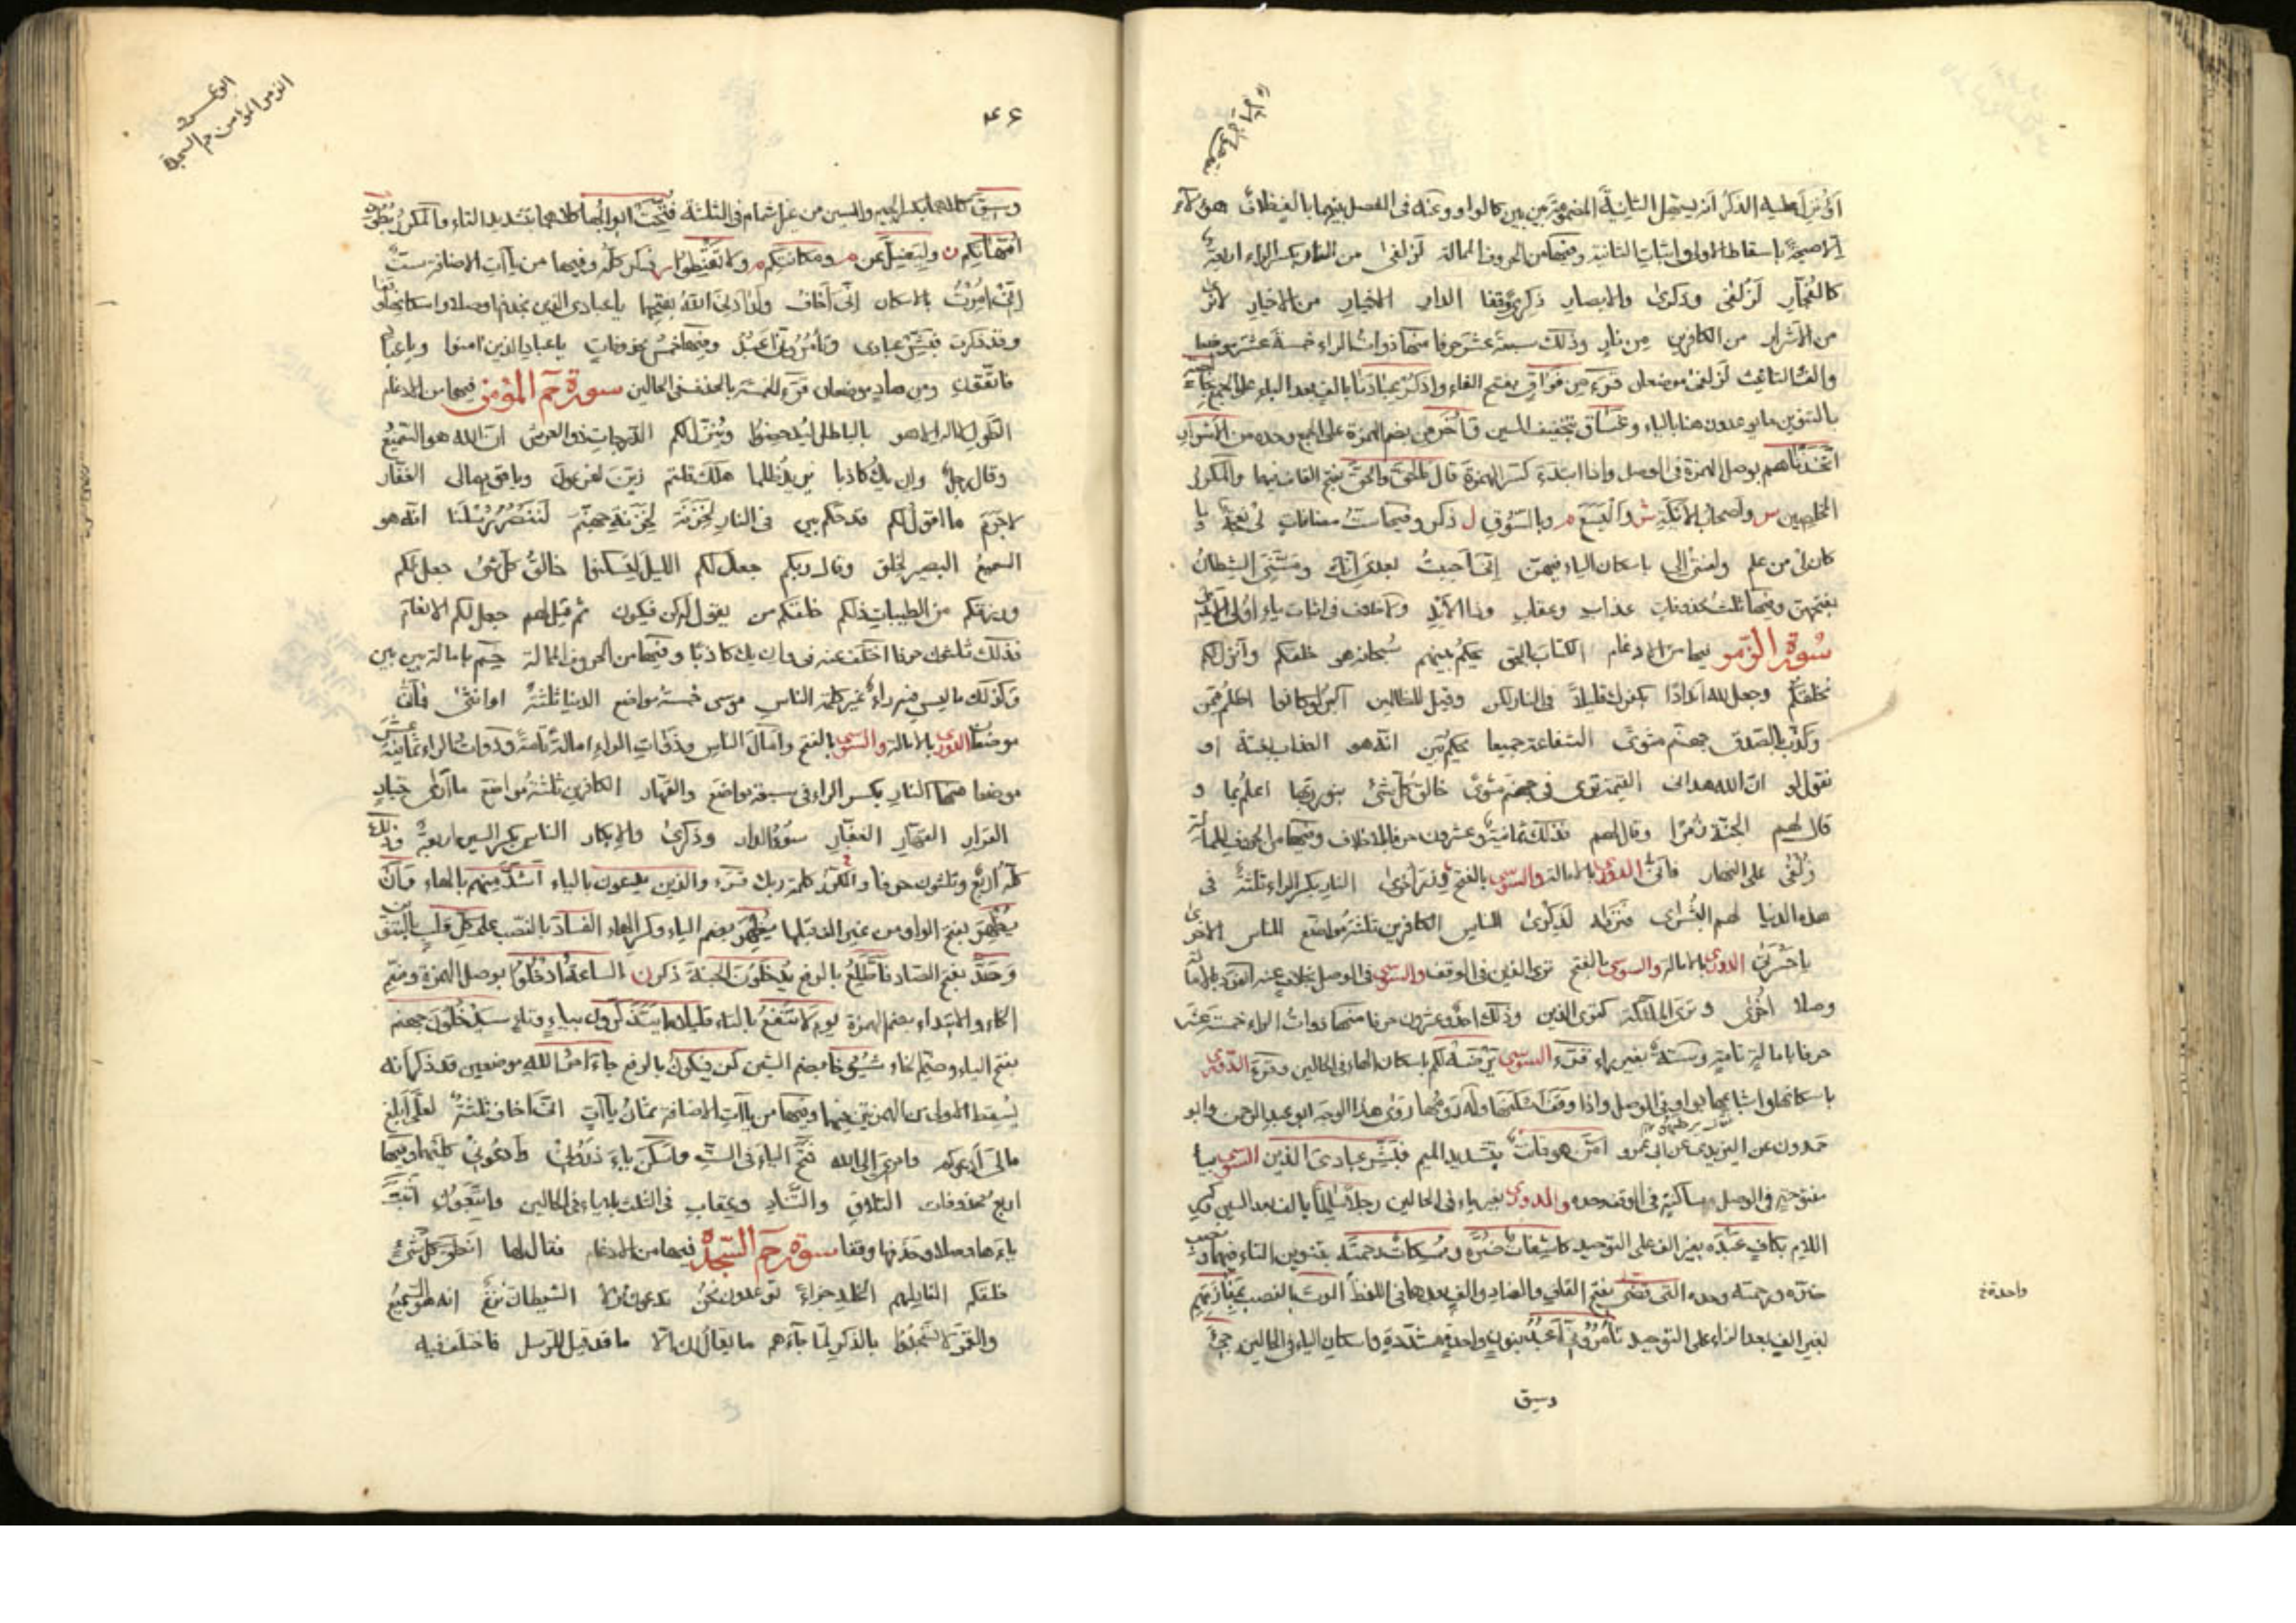 أؤنزل عليه الذكر انه يسهل الثانية المضمومة بين بين كالواو وعنه في الفصل بينهما بالف خلاف هؤلاء
الا صيحة باسقاط الاولى واثبات الثانية وفيها من الحروف الممالة لزلفى من النار بكسر الراء اربعة
كالفجار لزلفى وذكرى والابصار ذكرى وقفا الدار الاخيار من الاخيار لا نرى
من الاشرار من الكافرين من نار وذلك سبعة عشر حرفا منها ذوات الراء خمسة عشر موضعا
والف التانيث لزلفى موضعان قرء من فواق بفتح الفاء واذكر عبادنا بالف بعد الباء على الجمع بخالصة
بالتنوين ما يوعدون هنا بالياء وغساق بتخفيف السين وأخر من بضم الهمزة على الجمع وحده من الاشرار
اتخذناهم بوصل الهمزة في الوصل واذا ابتدء كسر الهمزة قال فالحق والحق بفتح القاف فيهما والمكرر
المخلصين س واصحاب الايكة ش واليسع م وبالسوق ل ذكر وفيها ست مضافات لي نعجة و
كان لي من علم ولعنتي الى باسكان الياء فيهن اني احببت بعدي انك ومسني الشيطان
بفتحهن وفيها ثلث محذوفات عذاب وعقاب وذا الايد ولا خلاف في اثبات ياء اولي الايدي
سورة الزمر فيها من الادغام الكتاب بالحق يحكم بينهم سبحانه هو خلقكم وانزل لكم
يخلقكم وجعل لله اندادا بكفرك قليلا في النار لكن وقيل للظالمين اكبر لو كانوا اظلم ممن
وكذب بالصدق جهنم مثوى الشفاعة جميعا تحكم بين انه هو العذاب بغتة او
تقول لو ان الله هداني القيمة ترى في جهنم مثوى خالق كل شيء بنور ربها اعلم بما و
قال لهم الجنة زمرا وقال لهم فذلك ثمانية وعشرون حرفا بلا خلاف وفيها من الحروف الممالة
زلفى على النهار فأنى الدوري بالامالة والسوسي بالفتح وزر اخرى النار بكسر الراء ثلثة في
هذه الدنيا لهم البشرى فتراه لذكرى للناس الكافرين ثلثة مواضع للناس الاخرى
يا حسرتى الدوري بالامالة والسوسي بالفتح ترى الذين في الوقف والسوسي في الوصل بخلاف عنه
وصلا اخرى وترى الملئكة كترى الذين وذلك احد وعشرون حرفا منها ذوات الراء خمسة عشر
حرفا بامالة تامة وستة بغير راء قرء السوسي يرضه لكم باسكان الهاء في الحالين وقرء الدوري
باسكانها واشباعها بواو في الوصل واذا وقفا اسكنها وله روى هذا الوجه ابو عبد الرحمن وابو
حمدون عن اليزيدي عن ابي عمرو امن هو قانت بتشديد الميم فبشر عبادي الذين السوسي بياء
مفتوحة في الوصل ساكنة في الوقف وحده والدوري بغير ياء في الحالين رجلا سالما بالف بعد السين وكسر
اللام بكاف عبده بغير الف على التوحيد كاشفات ضره وممسكات رحمته بتنوين التاء فيهما ونصب
ضره ورحمته وحده التي قضى بفتح القاف والضاد والف بعدها في اللفظ الموت بالنصب بمفازتهم
بغير الف بعد الزاء على التوحيد تأمروني اعبد بنون واحدة مشددة واسكان الياء في الحالين جيء
واحدة خ
وسيق
الزمر المؤمن حم السجدة
وسيق كلاهما بكسر الجيم والسين من غير اشمام في الثلثة فتحت ابوابها كلاهما بتشديد التاء والمكرر بطون
امهاتكم ن وليضل عن م ومكانتكم م ولا تقنطوا س ذكر كله وفيها من ياآت الاضافة ست
اني امرت بالاسكان اني اخاف وارادني الله بفتحهما يا عبادي الذين بحذفها وصلا واسكانها وقفا
وقد ذكرت فبشر عبادي وتأمروني اعبد وفيها خمس محذوفات يا عباد الذين امنوا ويا عباد
فاتقون ومن هاد موضعان قرء الخمسة بالحذف في الحالين سورة حم المؤمن فيها من الادغام
الطول لا اله الا هو بالباطل ليدحضوا وينزل لكم الدرجات ذو العرش ان الله هو السميع
وقال رجل وان يك كاذبا يريد ظلما هلك قلتم زين لفرعون ويا قوم مالي الغفار
لا جرم ما اقول لكم قد حكم بين في النار لخزنة لخزنة جهنم لننصر رسلنا انه هو
السميع البصير لخلق وقال ربكم جعل لكم الليل لتسكنوا خالق كل شيء جعل لكم
ورزقكم من الطيبات ذلكم خلقكم من يقول له كن فيكون ثم قيل لهم جعل لكم الانعام
فذلك ثلثون حرفا اختلف عنه في وان يك كاذبا وفيها من الحروف الممالة حم بامالة بين بين
وكذلك ما ليس فيه راء غير كلمة الناس موسى خمسة مواضع الدنيا ثلثة او انثى فأنى
موضعا الدوري بالامالة والسوسي بالفتح وامال الناس وذوات الراء امالة تامة وذوات الراء ثمانية عشر
موضعا منها النار بكسر الراء في سبعة مواضع والقهار الكافرين ثلثة مواضع ما ارى جبار
القرار القهار الغفار سوء الدار وذكرى والابكار الناس بكسر السين اربعة وذلك
كله اربع وثلثون حرفا والمكرر كلمة ربك قرء والذين يدعون بالياء اشد منهم بالهاء وان
يظهر بفتح الواو من غير الف قبلها يظهر بضم الياء وكسر الهاء الفساد بالنصب على كل قلب بالتنوين
وصد بفتح الصاد فاطلع بالرفع يدخلون الجنة ذكر ن الساعة ادخلوا بوصل الهمزة وضم
الخاء والابتداء بضم الهمزة يوم لا تنفع بالتاء قليلا ما يتذكرون بياء وتاء سيدخلون جهنم
بفتح الياء وضم الخاء شيوخا بضم الشين كن فيكون بالرفع جاء امر الله موضعين قد ذكر انه
يسقط الاولى من الهمزتين فيهما وفيها من ياآت الاضافة ثمان ياآت اني اخاف ثلثة لعلي ابلغ
مالي ادعوكم وامري الى الله فتح الياء في الست واسكن ياء ذروني وادعوني كليهما وفيها
اربع محذوفات التلاق والتناد وعقاب في الثلث بلا ياء في الحالين واتبعون اثبت
ياءها وصلا وحذفها وقفا سورة حم السجدة فيها من الادغام فقال لها انطق كل شيء
خلقكم النار لهم الخلد جزاء توعدون نحن تدعون نزلا الشيطان نزغ انه هو السميع
والقمر لا تسجدوا بالذكر لما جاءهم ما يقال لك الا ما قد قيل للرسل فاختلف فيه